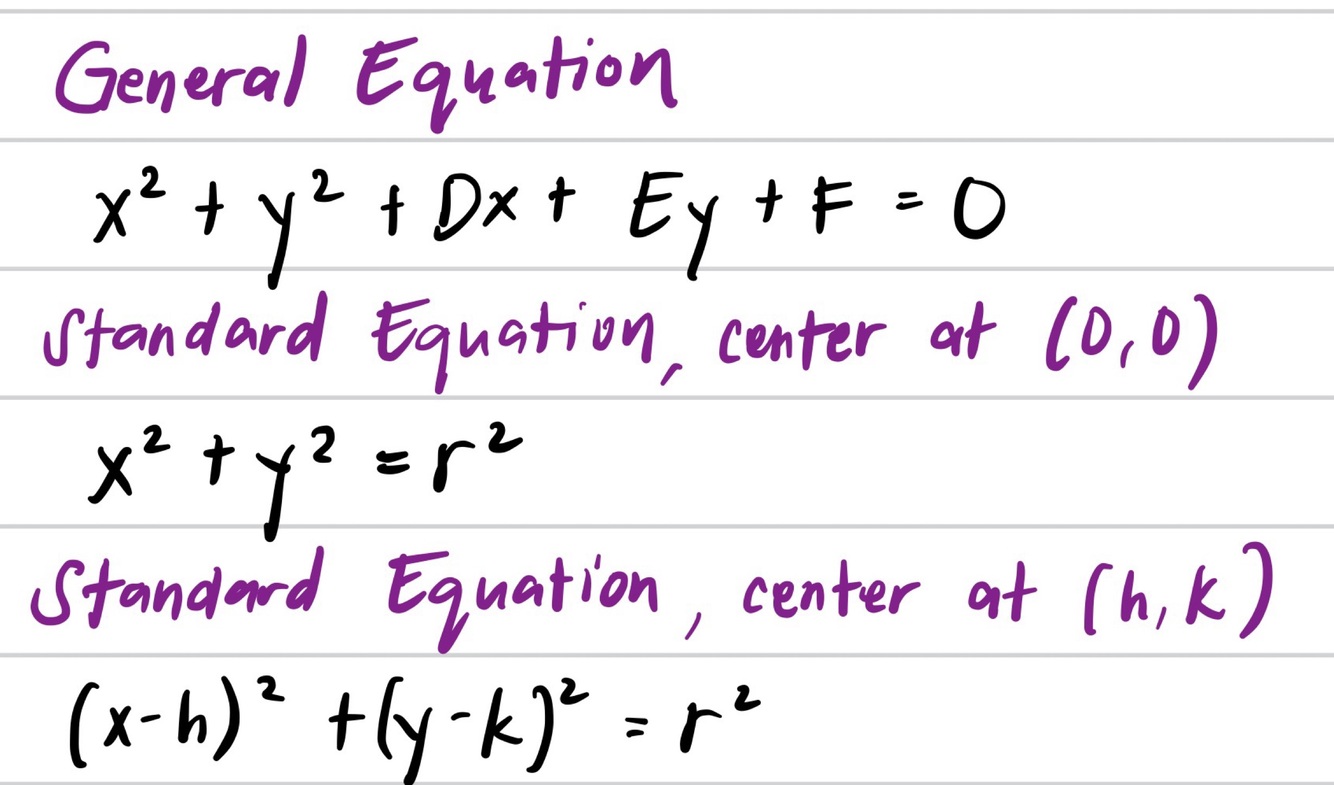 General Equation
x² + y² + Dx + Ey + F = 0
Standard Equation, center at (0,0)
x² + y² = r²
Standard Equation, center at (h,k)
(x-h)² + (y-k)² = r²